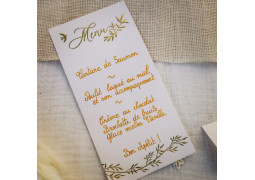 Menu
Tartare de Saumon
~
Poulet laqué au miel,
et son accompagnement
~
Crème au chocolat
Brochette de fruits
Glace maison Vanille
Bon Appétit !